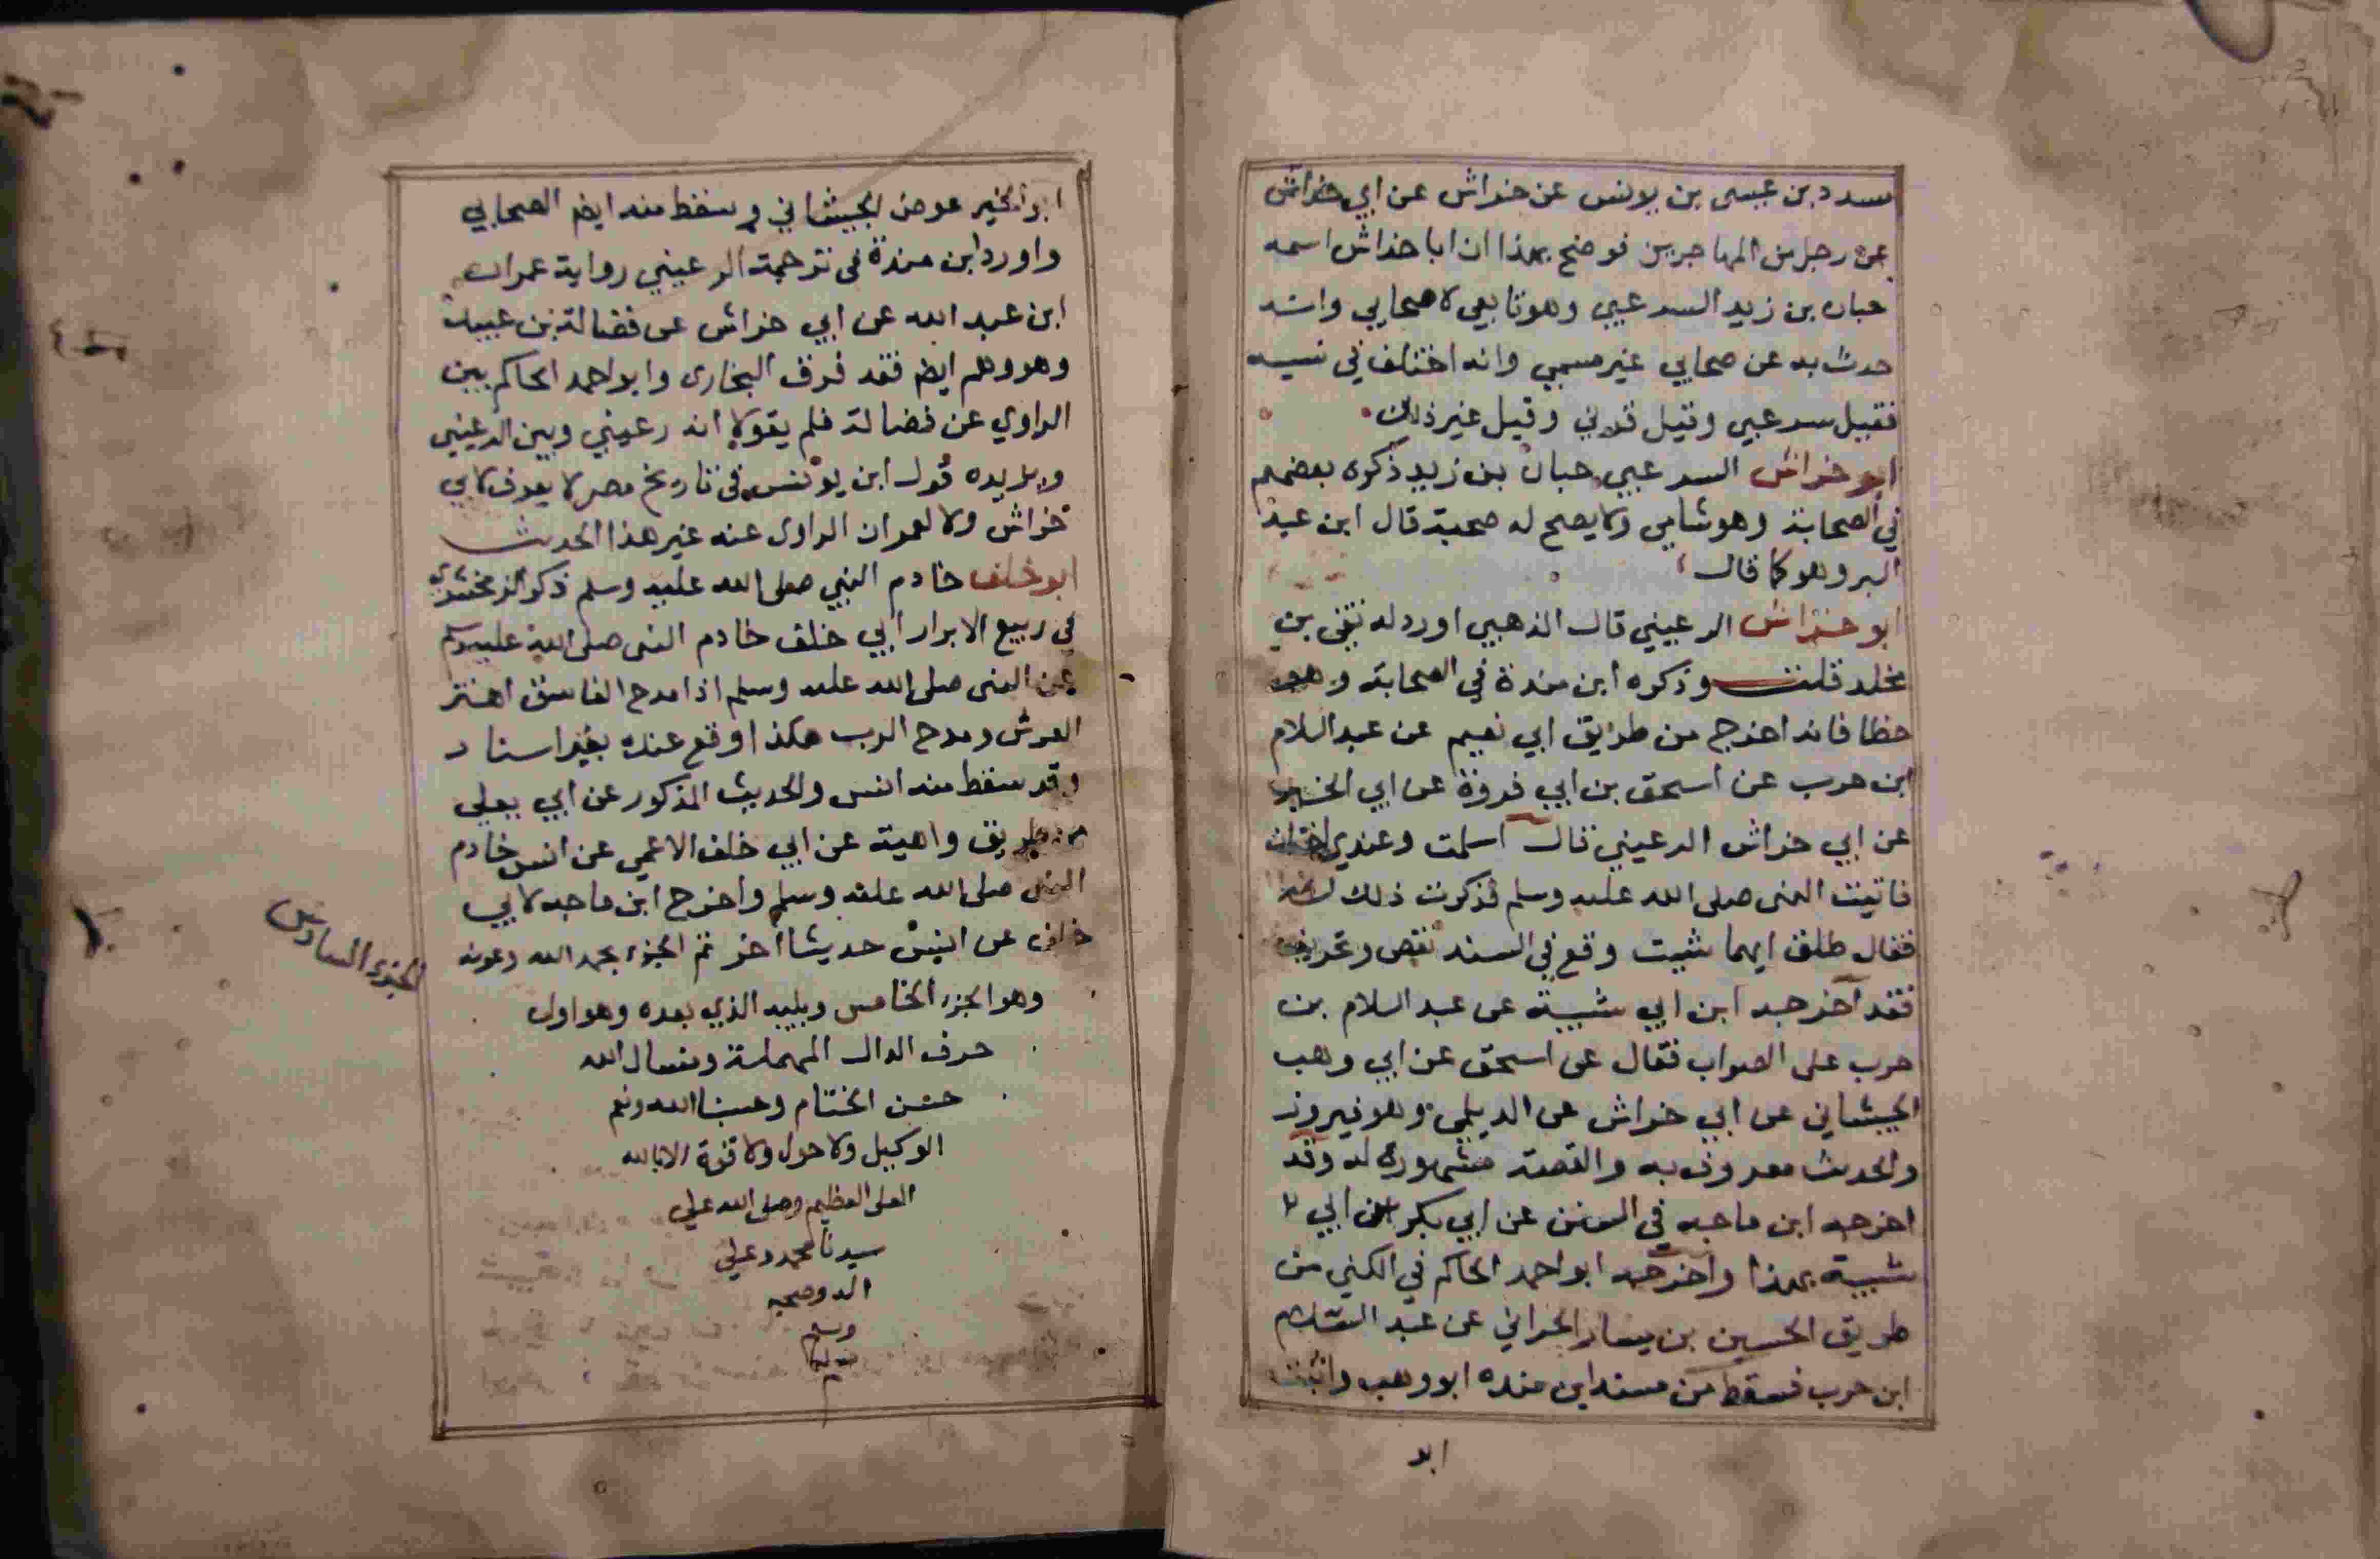 مسدد بن عيسى بن يونس عن خداش عن ابي خداش
عن رجل من المهاجرين فوضح بهذا ان ابا خداش اسمه
حبان بن زيد السرعبي وهو تابعي لا صحابي وانه
حدث به عن صحابي غير مسمي وانه اختلف في نسبه
فقيل سرعبي وقيل وقيل غير ذلك
ابو خداش السرعبي حبان بن زيد ذكره بعضهم
في الصحابة وهو شامي ولا يصح له صحبة قال ابن عبد
البر وهو كما قال
ابو خراش الرعيني قال الذهبي اورد له بقي بن
مخلد قلت وذكره ابن مندة في الصحابة وهو
خطا فانه اخرج من طريق ابي نعيم عن عبد السلام
ابن حرب عن اسحق بن ابي فروة عن ابي الخير
عن ابي خراش الرعيني قال اسلمت وعندي اختان
فاتيت النبي صلى الله عليه وسلم فذكرت ذلك له
فقال طلق ايهما شيت وقع في السند نقص وتحريف
فقد اخرجه ابن ابي شيبة عن عبد السلام بن
حرب على الصواب فقال عن اسحق عن ابي وهب
الجيشاني عن ابي خراش عن الديلمي وهو فيروز
والحديث معروف به والقصة مشهورة له وقد
اخرجه ابن ماجه في السنن عن ابي بكر بن ابي
شيبة بهذا واخرجه ابو احمد الحاكم في الكني من
طريق الحسين بن يسار الحراني عن عبد السلام
ابن حرب فسقط من مسند ابن منده ابو وهب واثبت
ابو
ابو الخير عوض الجيشاني وسقط منه ايضا الصحابي
واورد ابن مندة في ترجمة الرعيني رواية عمران
ابن عبد الله عن ابي خراش عن فضالة بن عبيد
وهو وهم ايضا فقد فرق البخاري وابو احمد الحاكم بين
الراوي عن فضالة فلم يقولا انه رعيني وبين الرعيني
ويريده قول ابن يونس في تاريخ مصر لا يعرف لابي
خراش ولا لعمران الراوي عنه غير هذا الحديث
ابو خلف خادم النبي صلى الله عليه وسلم ذكر الزمخشري
في ربيع الابرار ابي خلف خادم النبي صلى الله عليه وسلم
عن النبي صلى الله عليه وسلم اذا مدح الفاسق اهتز
العرش ومدح الرب هكذا وقع عنده بغير اسناد
وقد سقط منه انس والحديث المذكور عن ابي يعلي
من طريق واهية عن ابي خلف الاعمي عن انس خادم
النبي صلى الله عليه وسلم واخرج ابن ماجه لابي
خلف عن انس حديثا اخر تم الجزء بحمد الله وعونه
وهو الجزء الخامس ويليه الذي بعده وهو اول
حرف الدال المهملة ونسال الله
حسن الختام وحسبنا الله ونعم
الوكيل ولا حول ولا قوة الا بالله
العلي العظيم وصلى الله علي
سيدنا محمد وعلي
اله وصحبه
وسلم
الجزء السادس